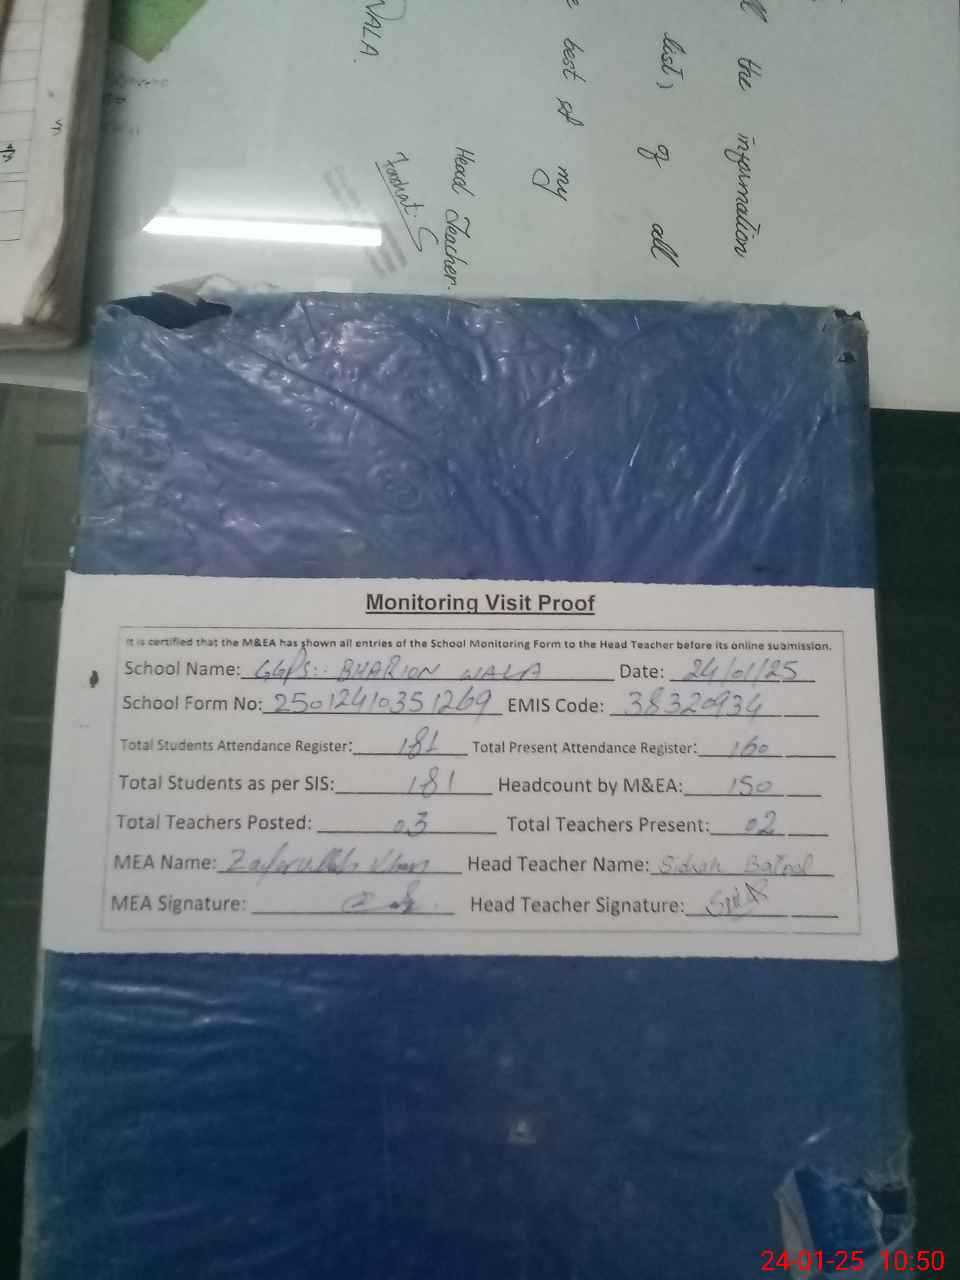 WALA.
best of my
list, of all
the information
Head Teacher.
Monitoring Visit Proof
It is certified that the M&EA has shown all entries of the School Monitoring Form to the Head Teacher before its online submission.
School Name: GGPS:- BHARION WALA Date: 24/01/25
School Form No: 2501241035 1269 EMIS Code: 38320934
Total Students Attendance Register: 181 Total Present Attendance Register: 160
Total Students as per SIS: 181 Headcount by M&EA: 150
Total Teachers Posted: 03 Total Teachers Present: 02
MEA Name: Zafarullah Khan Head Teacher Name: Sidrah Batool
MEA Signature: Head Teacher Signature:
24-01-25 10:50